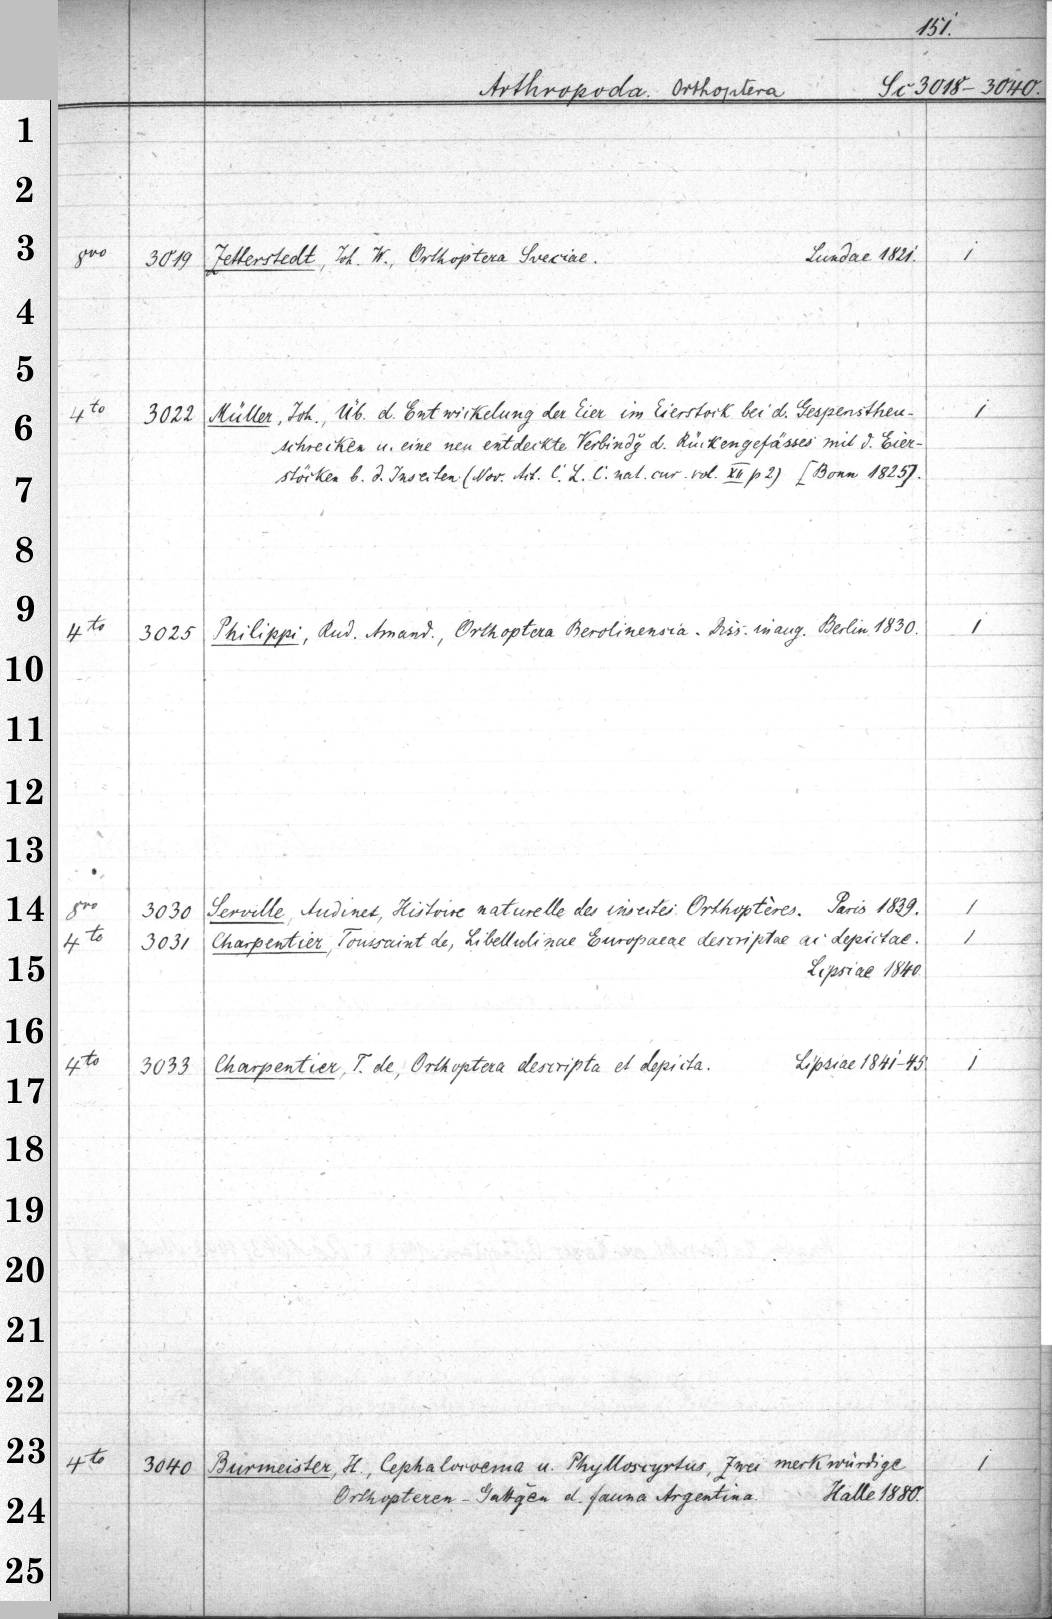 151.
Arthropoda. Orthoptera Sc 3018-3040.
1
2
3
8vo 3019 Zetterstedt, Joh. W., Orthoptera Sveciae. Lundae 1821. 1
4
5
4to 3022 Müller, Joh., Üb. d. Entwickelung der Eier im Eierstock bei d. Gespenstheu- 1
6
schrecken u. eine neu entdeckte Verbindg d. Rückengefässes mit d. Eier-
stöcken b. d. Insecten (Nov. Act. C. L. C. nat. cur. vol. XII p 2) [Bonn 1825].
7
8
9
4to 3025 Philippi, Rud. Amand., Orthoptera Berolinensia. Diss. inaug. Berlin 1830. 1
10
11
12
13
14
8vo 3030 Serville, Audinet, Histoire naturelle des insectes Orthoptères. Paris 1839. 1
4to 3031 Charpentier, Toussaint de, Libellulinae Europaeae descriptae ac depictae. 1
15
Lipsiae 1840
16
4to 3033 Charpentier, T. de, Orthoptera descripta et depicta. Lipsiae 1841-45. 1
17
18
19
20
21
22
23
4to 3040 Burmeister, H., Cephalocoema u. Phylloscyrtus, Zwei merkwürdige 1
Orthopteren-Gattgen d. fauna Argentina. Halle 1880.
24
25